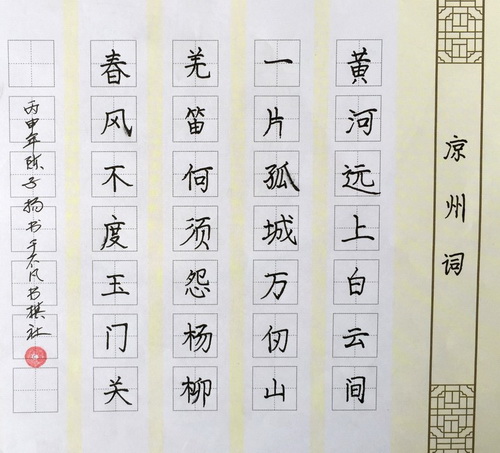 凉州词
黄河远上白云间
一片孤城万仞山
羌笛何须怨杨柳
春风不度玉门关
丙申年陈子扬书于大风书棋社